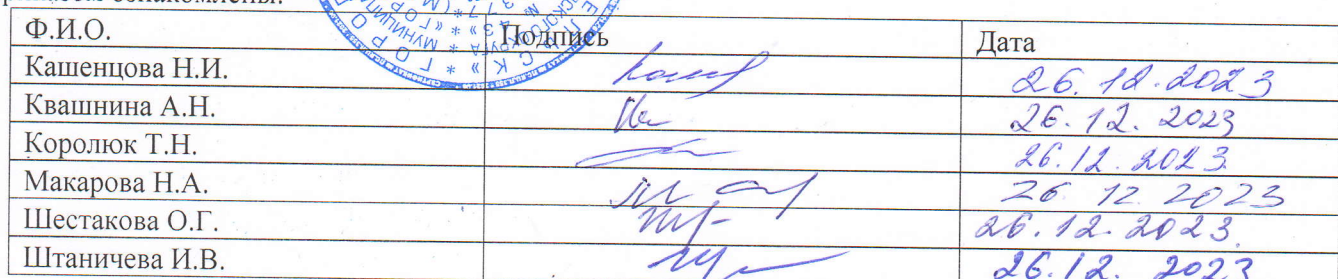 ознакомлены.
Ф.И.О. Подпись Дата
Кашенцова Н.И. 26.12.2023
Квашнина А.Н. 26.12.2023
Королюк Т.Н. 26.12.2023
Макарова Н.А. 26 12 2023
Шестакова О.Г. 26.12.2023.
Штаничева И.В. 26.12.2023